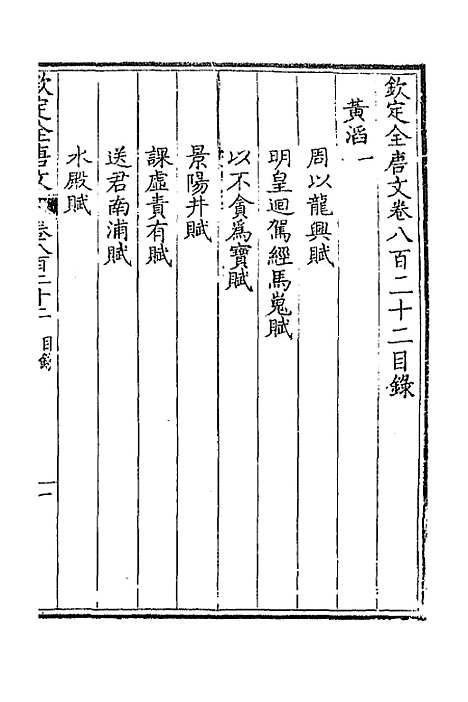 欽定全唐文卷八百二十二目錄
黃滔一
周以龍興賦
明皇迴駕經馬嵬賦
以不貪爲寶賦
景陽井賦
課虛責有賦
送君南浦賦
水殿賦
欽定全唐文 卷八百二十二 目錄 一